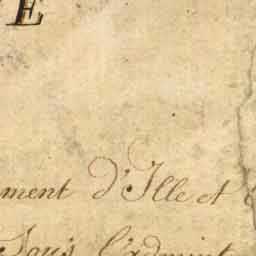 E
ment d'Ille et
Sous l'admint